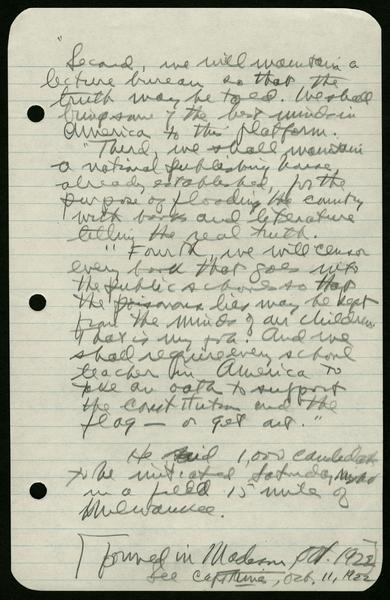 "Second, we will maintain a
lecture bureau so that the
truth may be told. We shall
bring some of the best minds in
America to this platform.
"Third, we shall maintain
a national publishing house
already established, for the
purpose of flooding the country
with books and literature
telling the real truth.
"Fourth, we will censor
every book that goes into
the public schools so that
the poisonous lies may be kept
from the minds of our children.
That is my job. And we
shall require every school
teacher in America to
take an oath to support
the constitution and the
flag — or get out."
He said 1,000 candidates
to be initiated Saturday night
in a field 15 mile of
Milwaukee.
Formed in Madison, Oct. 1922
See Cap Times, Oct. 11, 1922